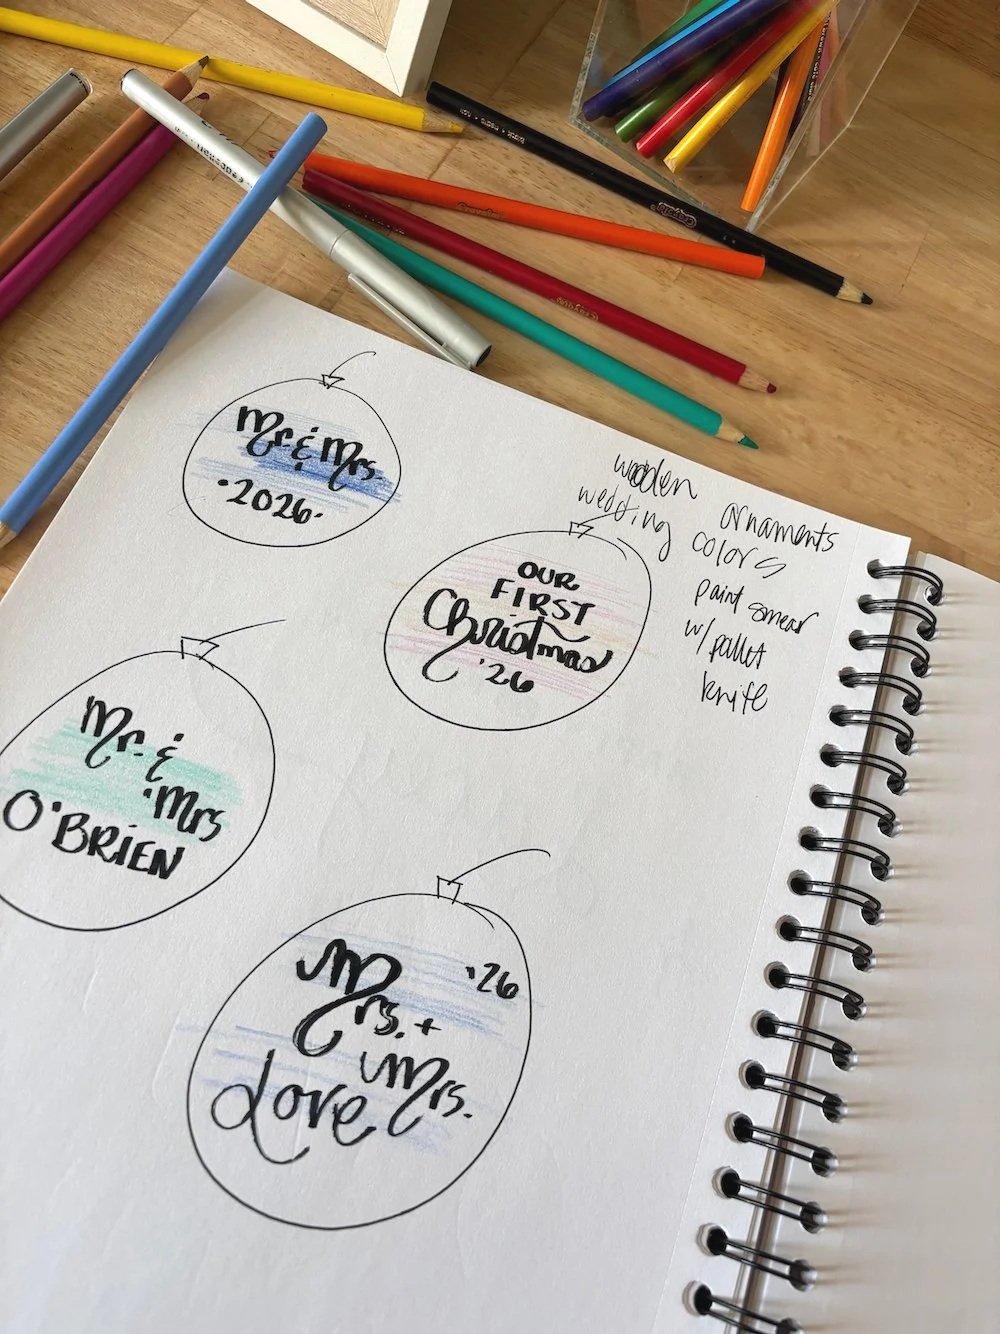 Mr. & Mrs.
·2026·
OUR
FIRST
Christmas
'26
wooden ornaments
wedding colors
paint smear
w/ pallet
knife
Mr. &
Mrs
O'BRIEN
'26
Mrs. +
Mrs.
Love
Crayola
Crayola
Crayola